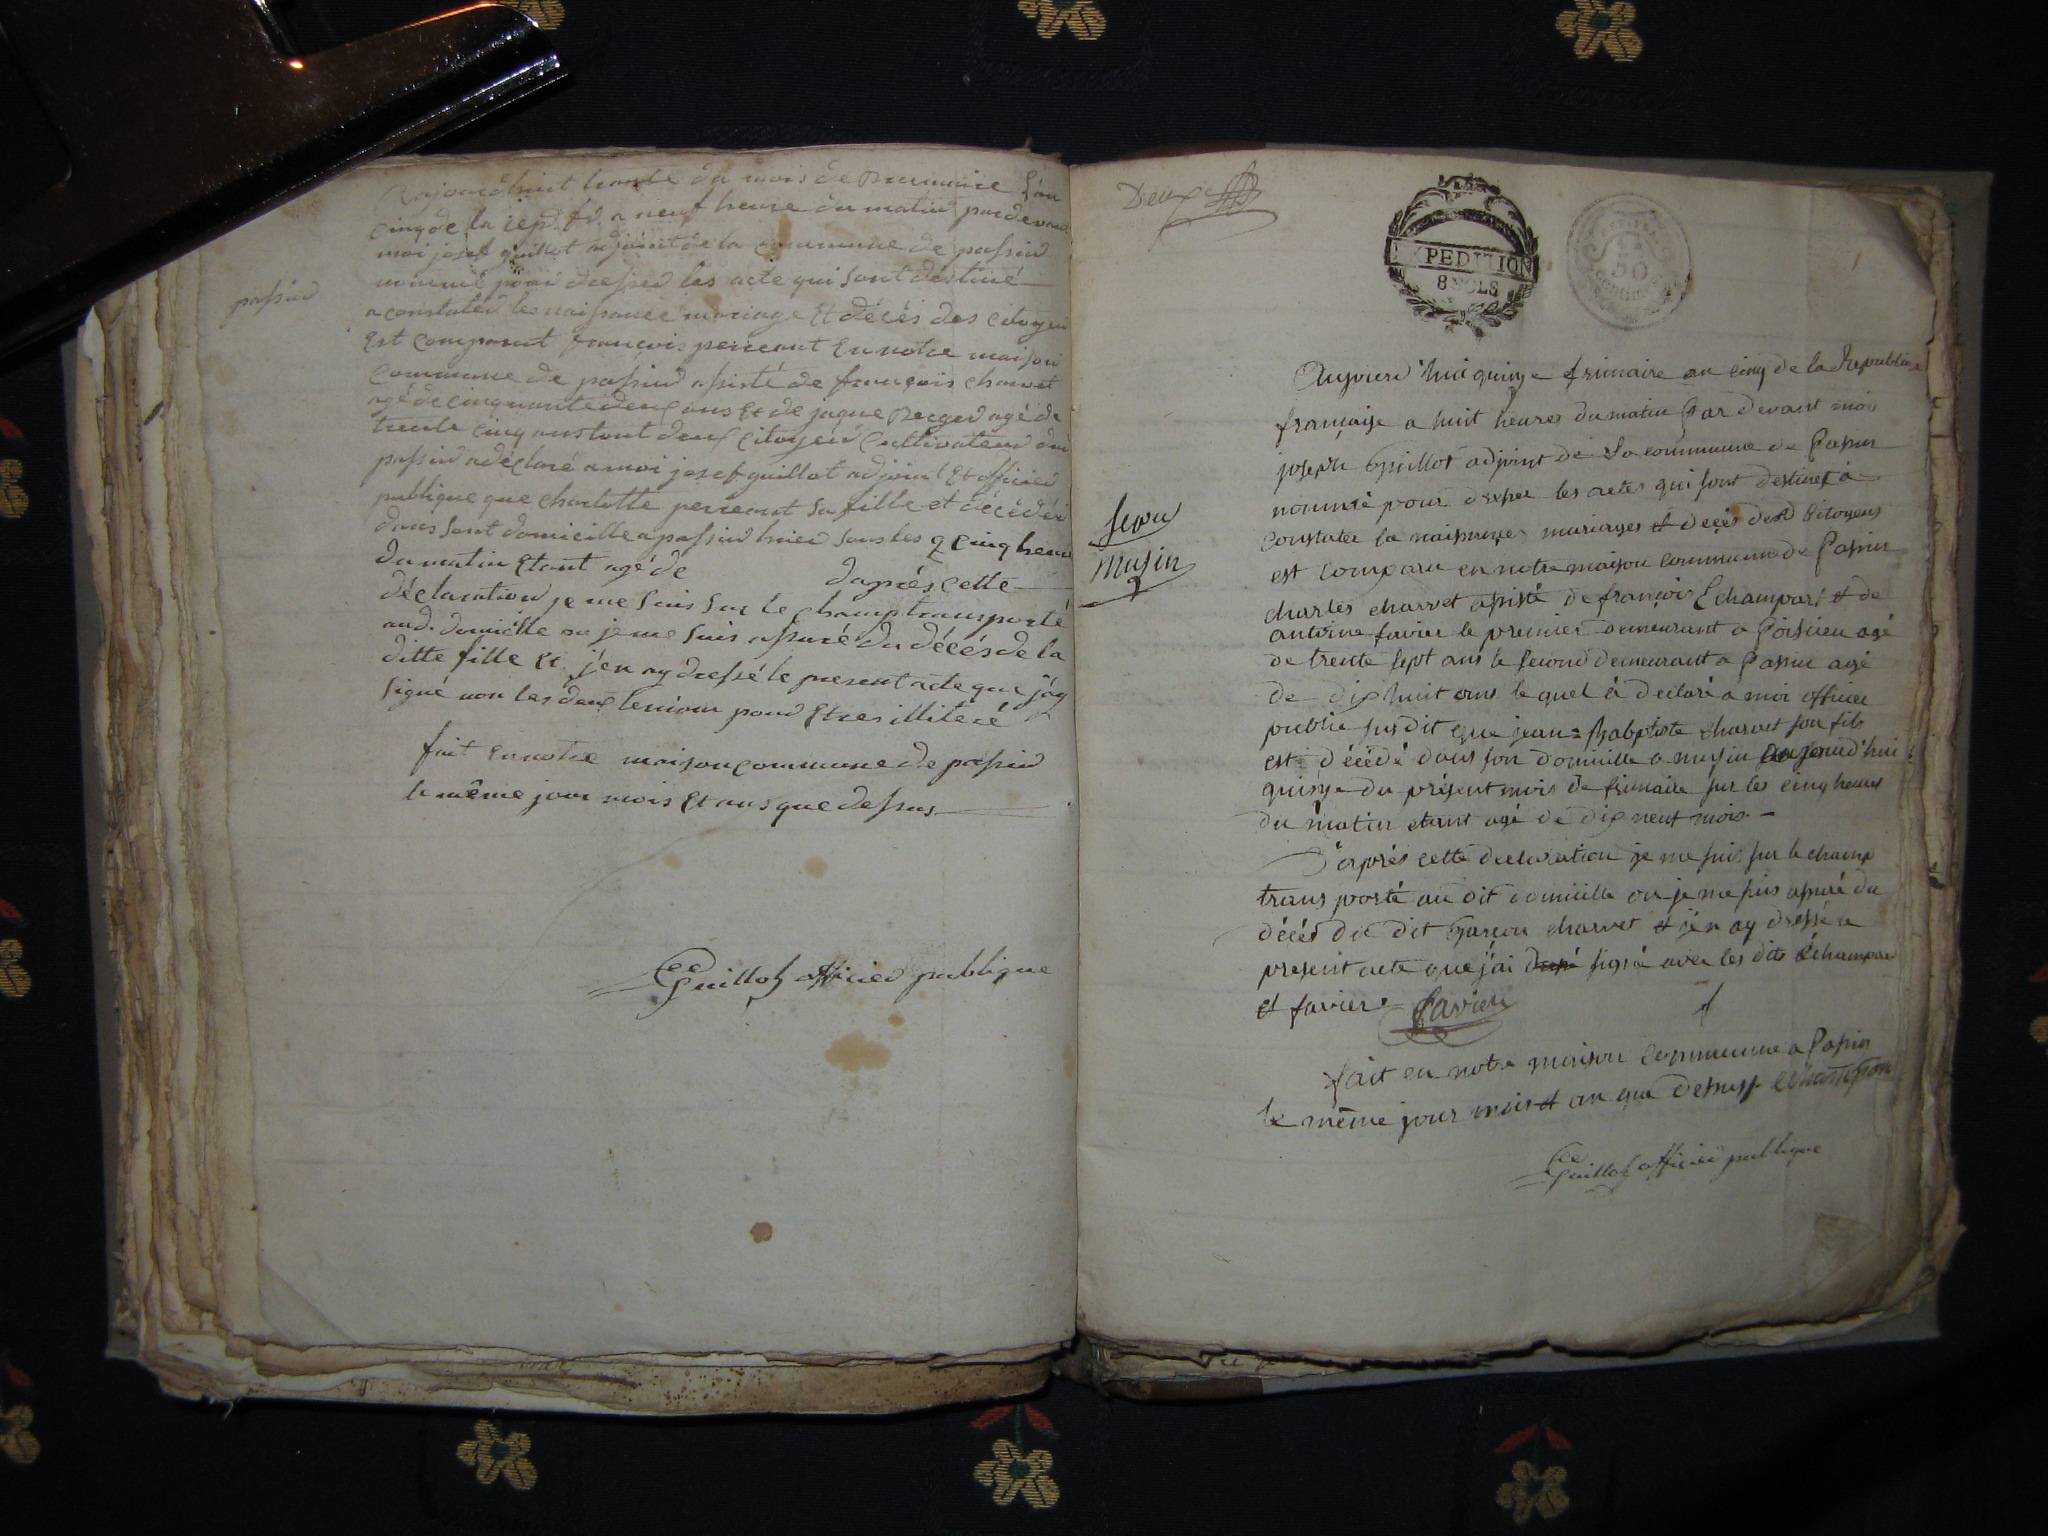 passin
aujourdhuit trente du mois de Brumaire l'an
cinq de la rep. fr. a neuf heure du matin pardevant
moi josef guillot adjoint de la commune de passin
nommé pour dresser les acte qui sont destiné
a constater les naissance mariage Et décés des citoyen
Est comparut françois perreaut En notre maison
commune de passin assisté de françois charvet
agé de cinquante deux ans Et de jaque Berger agé de
trente cinq ans tout deux citoyein cultivateur du
passin a déclaré a moi josef guillot adjoint Et officier
publique que charlotte perreaut sa fille et décédéé
dans sont domicille a passin hier sous les q cinq heure
du matin Etant agé de daprés cette
déclaration je me suis sur le champ transporté
aud. domicille ou je me suis assuré du décés de la
ditte fille Et j'en ay dressé le present acte que j'ay
signé non les deux temion pour Etres illiteré
fait En notre maison commune de passin
le même jour mois Et ans que dessus
Guillot officier publique
Deux
EXPEDITION
8 SOLS
50
centimes
musin
Aujourd'hui quinze frimaire an cinq de la Republique
française a huit heures du matin Par devant moi
joseph Guillot adjoint de La commune de Passin
nommé pour dresser les actes qui sont destinez à
constater la naissances mariages et decès des Citoyens
est comparu en notre maison commune de Passin
charles charvet assisté de françois Echampard et de
antoine favier le premier demeurant a Poisieu agé
de trente sept ans le second demeurant a Passin agé
de dix huit ans lequel à declaré a moi officier
public susdit que jean=Babptiste charvet son fils
est décédé dans son domicille a musin aujourd'hui
quinze du présent mois de frimaire sur les cinq heures
du matin etant agé de dix neuf mois -
D'aprés cette declaration je me suis sur le champ
transporté au dit domicille ou je me suis assuré du
décés du dit Garcon charvet et j'en ay dressé le
present acte que j'ai signé avec les dits Echampard
et favier favier
fait en notre maison commune a Passin
le même jour mois et an que dessus
Guillot officier publique